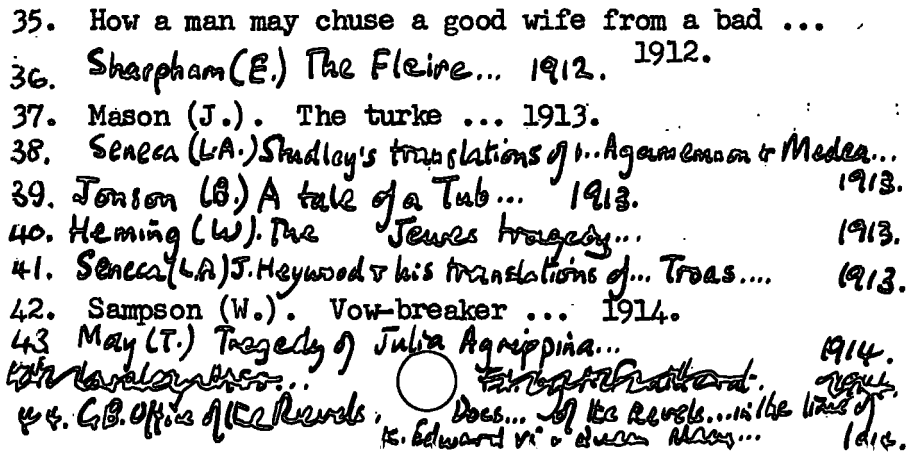 35. How a man may chuse a good wife from a bad ...
1912.
36. Sharpham (E.) The Fleire... 1912.
37. Mason (J.). The turke ... 1913.
38. Seneca (L.A.) Studley's translations of ... Agamemnon & Medea...
1913.
39. Jonson (B.) A tale of a Tub... 1913.
40. Heming (W). The Jewes tragedy... 1913.
41. Seneca (L.A) J. Heywood & his translations of... Troas.... 1913.
42. Sampson (W.). Vow-breaker ... 1914.
43 May (T.) Tragedy of Julia Agrippina... 1914.
44. G.B. Office of the Revels. Docs... of the Revels...in the time of
K. Edward vi & Queen Mary... 1914.